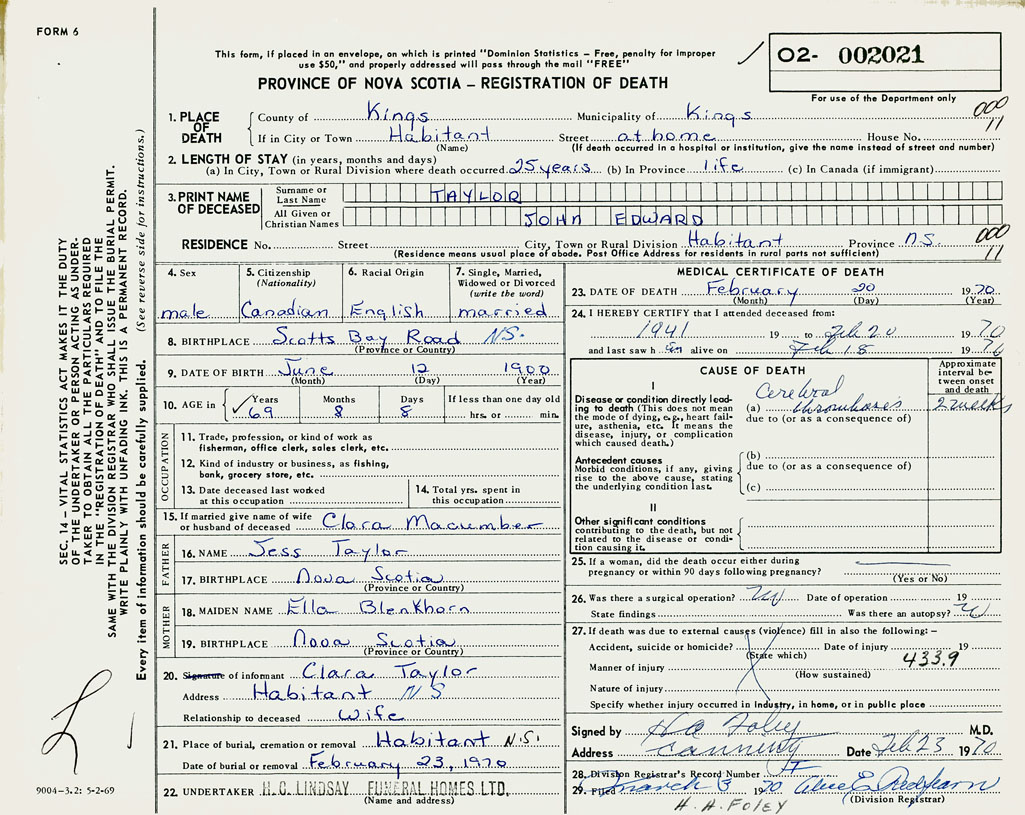 FORM 6
This form, if placed in an envelope, on which is printed "Dominion Statistics – Free, penalty for improper
use $50," and properly addressed will pass through the mail "FREE"
PROVINCE OF NOVA SCOTIA – REGISTRATION OF DEATH
O2- 002021
For use of the Department only
1. PLACE OF DEATH
County of Kings Municipality of Kings 000
If in City or Town Habitant Street at home House No. 11
(Name) (If death occurred in a hospital or institution, give the name instead of street and number)
2. LENGTH OF STAY (in years, months and days)
(a) In City, Town or Rural Division where death occurred 25 years (b) In Province life (c) In Canada (if immigrant)
3. PRINT NAME OF DECEASED
Surname or Last Name TAYLOR
All Given or Christian Names JOHN EDWARD
RESIDENCE No. Street City, Town or Rural Division Habitant Province N.S. 000 11
(Residence means usual place of abode. Post Office Address for residents in rural parts not sufficient)
4. Sex male
5. Citizenship (Nationality) Canadian
6. Racial Origin English
7. Single, Married, Widowed or Divorced (write the word) married
8. BIRTHPLACE Scotts Bay Road N.S.
(Province or Country)
9. DATE OF BIRTH June 12 1900
(Month) (Day) (Year)
10. AGE in Years 69 Months 8 Days 8 If less than one day old hrs. or min.
OCCUPATION
11. Trade, profession, or kind of work as
fisherman, office clerk, sales clerk, etc.
12. Kind of industry or business, as fishing,
bank, grocery store, etc.
13. Date deceased last worked at this occupation
14. Total yrs. spent in this occupation
15. If married give name of wife
or husband of deceased Clara Macumber
FATHER
16. NAME Jess Taylor
17. BIRTHPLACE Nova Scotia
(Province or Country)
MOTHER
18. MAIDEN NAME Ella Blenkhorn
19. BIRTHPLACE Nova Scotia
(Province or Country)
20. Signature of informant Clara Taylor
Address Habitant N S
Relationship to deceased wife
21. Place of burial, cremation or removal Habitant N.S.
Date of burial or removal February 23, 1970
22. UNDERTAKER H.C. LINDSAY FUNERAL HOMES LTD.
(Name and address)
MEDICAL CERTIFICATE OF DEATH
23. DATE OF DEATH February 20 1970
(Month) (Day) (Year)
24. I HEREBY CERTIFY that I attended deceased from:
1941 19 to Feb 20 1970
and last saw h im alive on Feb 18 1970
CAUSE OF DEATH
Approximate interval between onset and death
I
Disease or condition directly leading to death (This does not mean the mode of dying, e.g., heart failure, asthenia, etc. It means the disease, injury, or complication which caused death.)
Cerebral
(a) thromboses 2 weeks
due to (or as a consequence of)
Antecedent causes
Morbid conditions, if any, giving rise to the above cause, stating the underlying condition last.
(b)
due to (or as a consequence of)
(c)
II
Other significant conditions
contributing to the death, but not related to the disease or condition causing it.
25. If a woman, did the death occur either during
pregnancy or within 90 days following pregnancy?
(Yes or No)
26. Was there a surgical operation? Date of operation 19
State findings Was there an autopsy?
27. If death was due to external causes (violence) fill in also the following: –
Accident, suicide or homicide? Date of injury 19
(State which) 433.9
Manner of injury
(How sustained)
Nature of injury
Specify whether injury occurred in Industry, in home, or in public place
Signed by H A Foley M.D.
Address Canning Date Feb 23 1970
28. Division Registrar's Record Number
29. Filed March 3 1970
(Division Registrar)
H. A. FOLEY
SEC. 14 – VITAL STATISTICS ACT MAKES IT THE DUTY
OF THE UNDERTAKER OR PERSON ACTING AS UNDER-
TAKER TO OBTAIN ALL THE PARTICULARS REQUIRED
IN THE "REGISTRATION OF DEATH" AND TO FILE THE
SAME WITH THE DIVISION REGISTRAR WHO SHALL ISSUE THE BURIAL PERMIT.
WRITE PLAINLY WITH UNFADING INK. THIS IS A PERMANENT RECORD.
Every item of information should be carefully supplied. (See reverse side for instructions.)
9004-3.2: 5-2-69